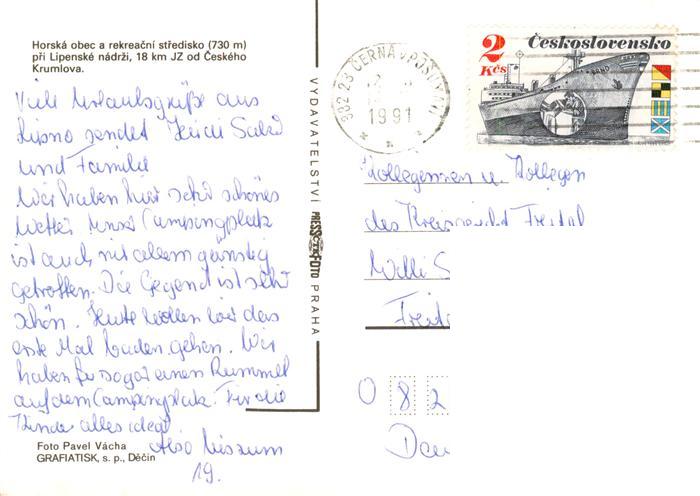 Horská obec a rekreační středisko (730 m)
při Lipenské nádrži, 18 km JZ od Českého
Krumlova.
Viele Urlaubsgrüße aus
Lipno sendet Heidi
und Familie
Wir haben hier sehr schönes
Wetter. Unser Campingplatz
ist auch mit allem günstig
getroffen. Die Gegend ist sehr
schön. Heute wollen wir das
erste Mal baden gehen. Wir
haben sogar einen Rummel
auf dem Campingplatz. Für die
Kinder alles ideal.
Also bis zum
19.
Foto Pavel Vácha
GRAFIATISK, s. p., Děčín
VYDAVATELSTVÍ PRESSFOTO PRAHA
382 23 ČERNÁ V POŠUMAVÍ
1991
2 Kčs
Československo
Kolleginnen u. Kollegen
des Kreisgericht Freital
Willi S
Freita
O 8 2